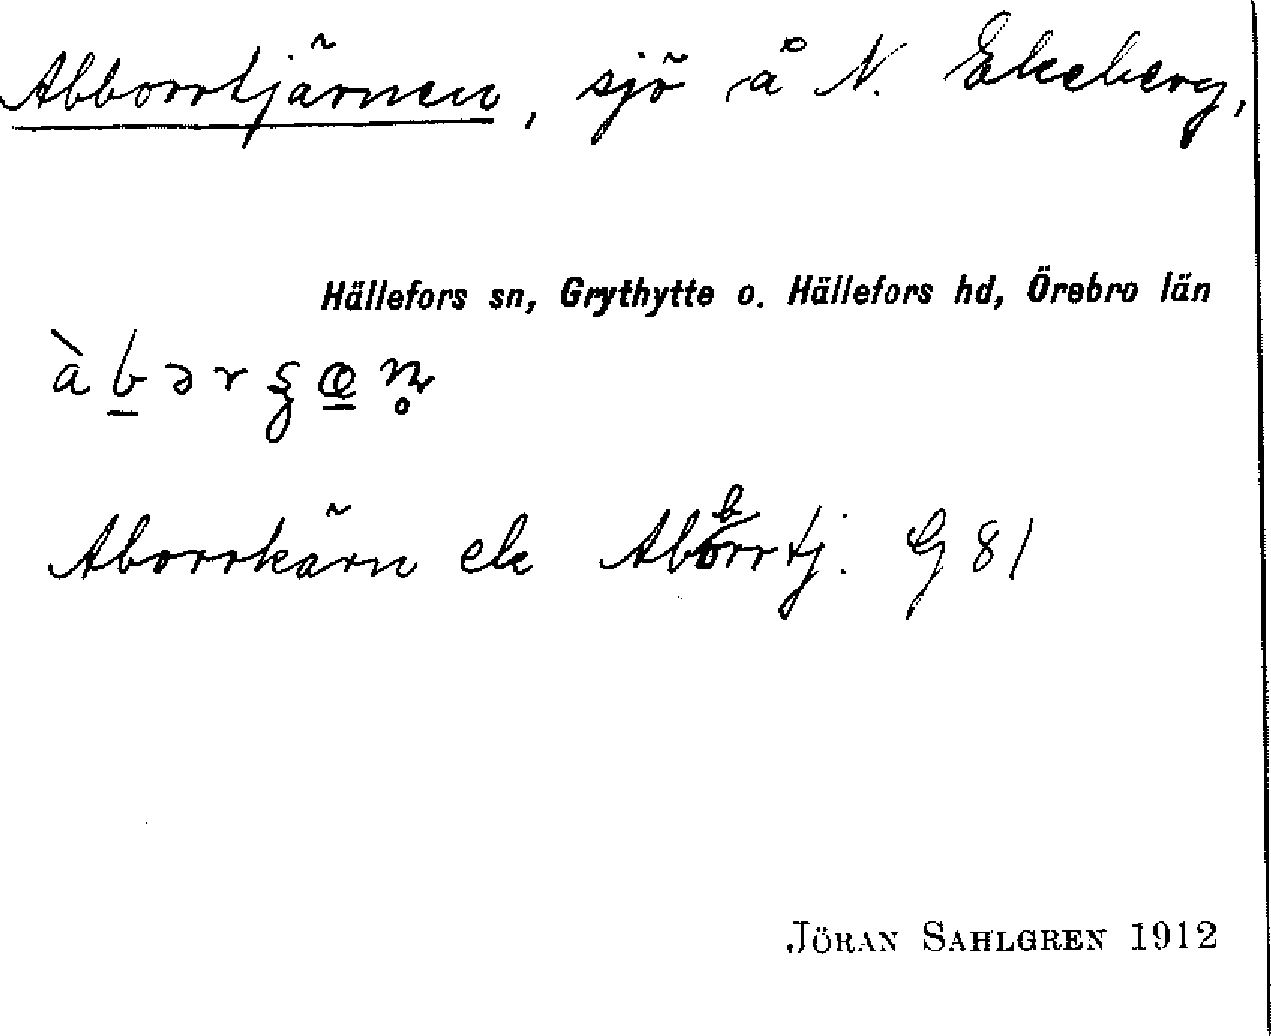 Abborrtjärnen, sjö å N. Ekeberg,
Hällefors sn, Grythytte o. Hällefors hd, Örebro län
Aborrkärn ek Abborrtj. G 81
JÖRAN SAHLGREN 1912